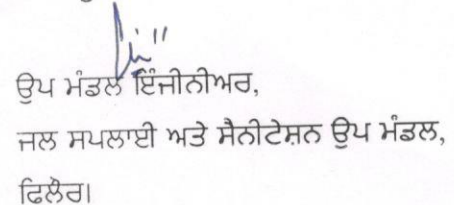 ਉਪ ਮੰਡਲ ਇੰਜੀਨੀਅਰ,
ਜਲ ਸਪਲਾਈ ਅਤੇ ਸੈਨੀਟੇਸ਼ਨ ਉਪ ਮੰਡਲ,
ਫਿਲੌਰ।